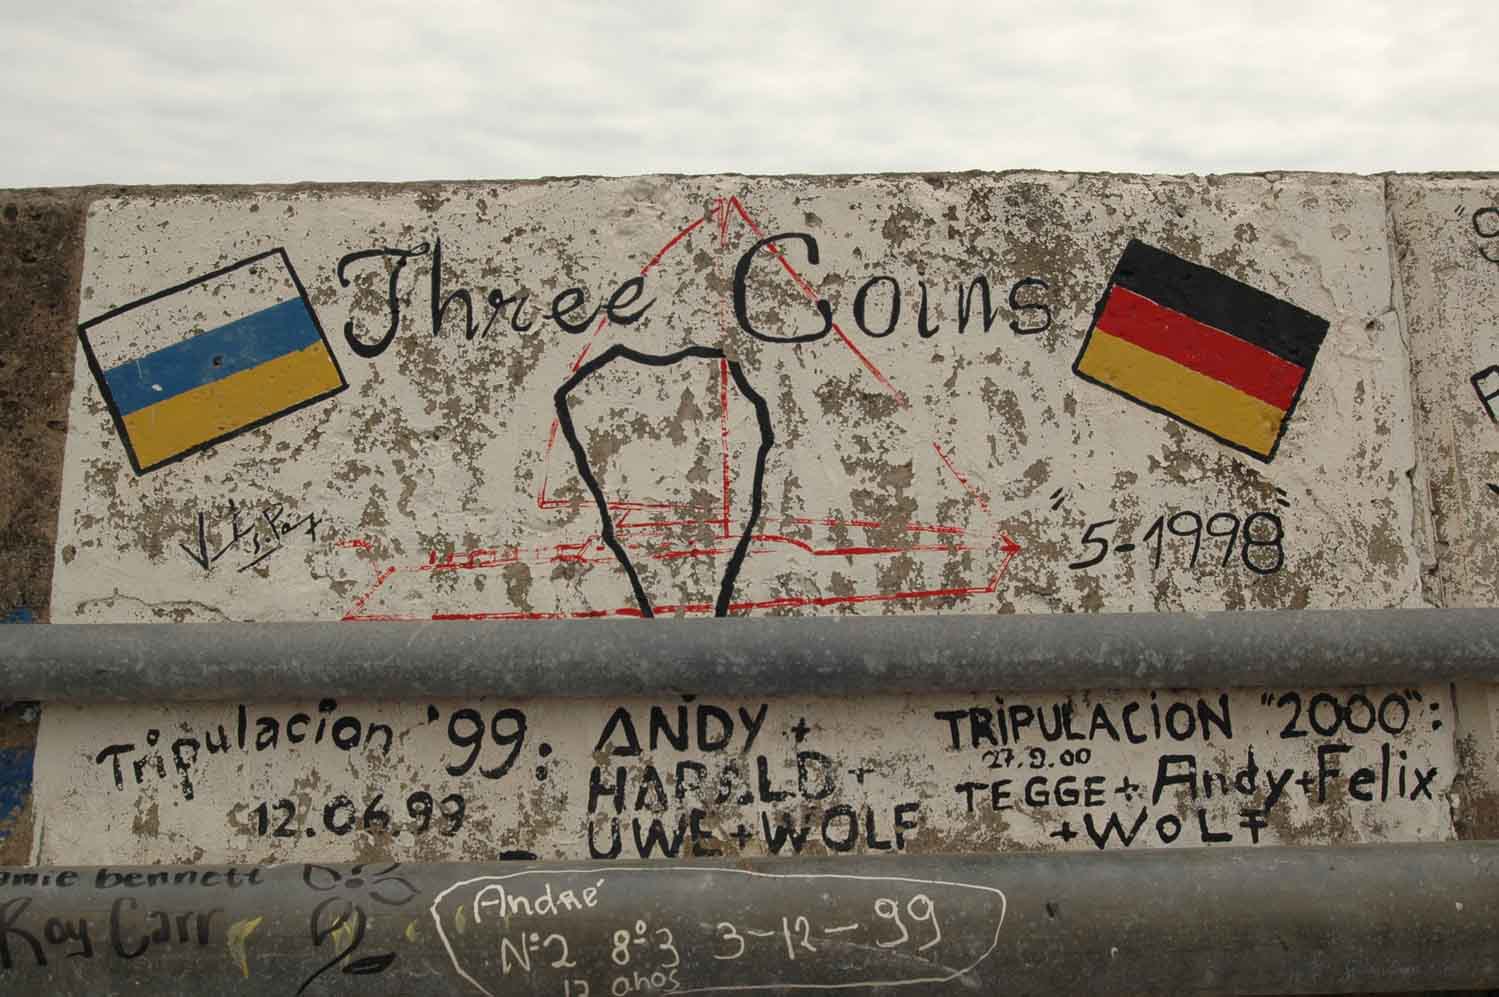 Three Coins
"5-1998"
Tripulacion '99:
12.06.99
ANDY +
HARALD +
UWE + WOLF
TRIPULACION "2000":
27.9.00
TEGGE + Andy + Felix
+ WOLF
bennett
Roy Carr
André
Nº2 8º3 3-12-99
12 anos